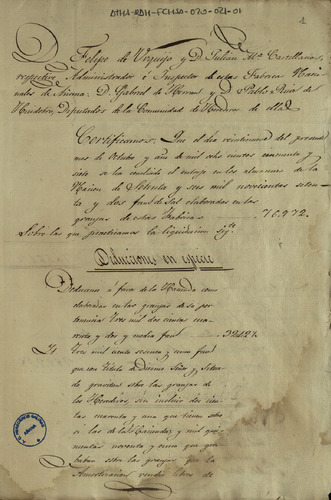 ATHA-RAH-FCHSA-020-021-01
1
D. Felipe de Urquijo y D. Julian Ma. Castellanos,
respective Administrador é Inspector de estas Fabricas Nacio-
nales de Añana: D. Gabriel de Herran y D. Pablo Ruiz de
Diputados de la Comunidad de Herederos de ellas
Certificamos: Que el dia veintinueve del presente
mes de Octubre y año de mil ocho cientos cincuenta y
siete se ha concluido el entrojo en los almacenes de la
Nacion de Setenta y seis mil novecientas seten-
ta y dos fans. de Sal elaboradas en las
granjas de estas Fabricas 76.972.
Sobre las que practicamos la liquidacion sigte.
Deducciones en especie
Deducimos á favor de la Hacienda como
elaboradas en las granjas de su per-
tenencia Tres mil dos cientas cua-
renta y dos y media fans. 3.242½
Tres mil ciento sesenta y cinco fans.
que con titulo de Diezmo Señor y Situa-
do gravitan sobre las granjas de
los Herederos, sin incluir dos cien-
tas cuarenta y una que tienen sobre
si las de la Hacienda; y mil qui-
nientas noventa y cinco que gra-
baban sobre las granjas que la
Amortizacion vendió libres de